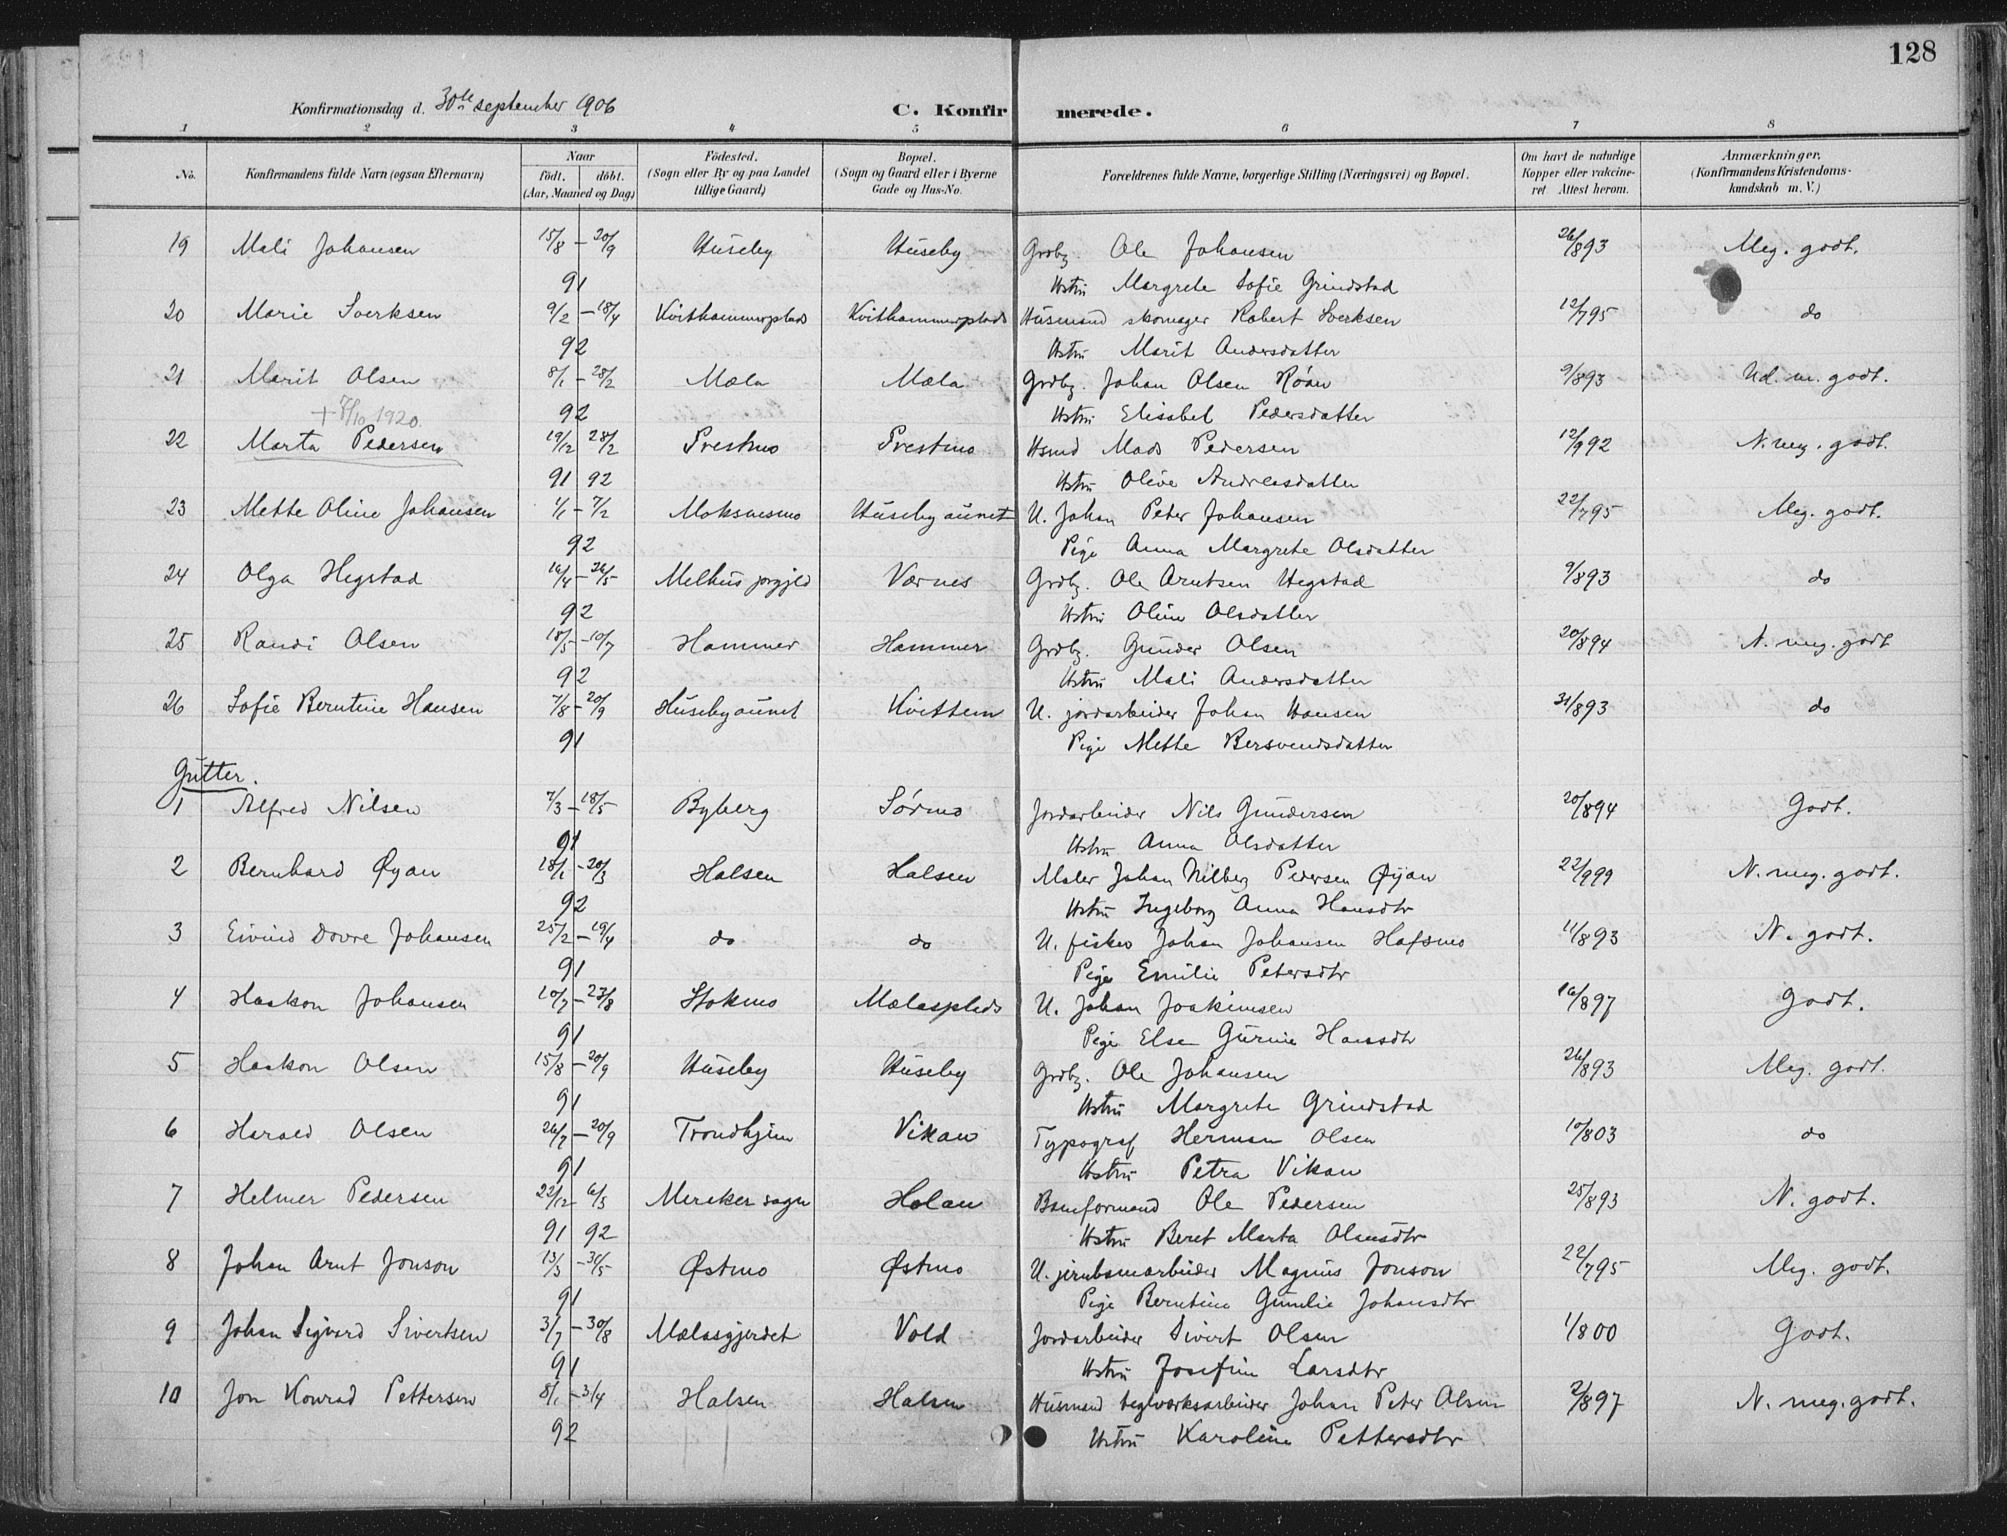 128
Konfirmationsdag d. 30te september 1906 C. Konfirmerede.
1 2 3 4 5 6 7 8
No. Konfirmandens fulde Navn (ogsaa Efternavn) Naar födt. döbt. (Aar, Maaned og Dag) Födested. (Sogn eller By og paa Landet tillige Gaard) Bopæl. (Sogn og Gaard eller i Byerne Gade og Hus-No. Forældrenes fulde Navne, borgerlige Stilling (Næringsvei) og Bopæl. Om havt de naturlige Kopper eller vakcineret. Attest herom. Anmærkninger. (Konfirmandens Kristendomskundskab m. V.)
19 Mali Johansen 15/8 - 20/9 Huseby Huseby Grdbr. Ole Johansen 26/893 Meg. godt.
91 Hstru Margrete Sofie Grindstad
20 Marie Sverksen 9/2 - 18/4 Kvithammerplads Kvithammerplads Husmand skomager Robert Sverksen 12/795 do
92 Hstru Marit Andersdatter
21 Marit Olsen 8/1 - 28/2 Mæla Mæla Grdbr. Johan Olsen Røan 9/893 Ud. m. godt.
+ 7/10 1920. 92 Hstru Elisabet Pedersdatter
22 Marta Pedersen 19/12 28/2 Prestmo Prestmo Hsmd Mads Pedersen 12/992 N. meg. godt.
91 92 Hstru Olive Andreasdatter
23 Mette Oline Johansen 1/1 - 7/2 Moksnesmo Husebyaunet U. Johan Peter Johansen 22/795 Meg. godt.
92 Pige Anna Margrete Olsdatter
24 Olga Hegstad 16/4 - 26/5 Melhus prgjld Værnes Grdbr. Ole Arntsen Hegstad 9/893 do
92 Hstru Oline Olsdatter
25 Randi Olsen 18/5 - 10/7 Hammer Hammer Grdbr. Gunder Olsen 20/894 N. meg. godt
92 Hstru Mali Andersdatter
26 Sofie Berntine Hansen 7/8 - 20/9 Husebyaunet Kvittem U. jordarbeider Johan Hansen 31/893 do
91 Pige Mette Bersvendsdatter
Gutter.
1 Alfred Nilsen 7/3 - 18/5 Byberg Sørmo Jordarbeider Nils Gundersen 20/894 Godt.
91 Hstru Anna Olsdatter
2 Bernhard Øyan 18/1 - 20/3 Halsen Halsen Maler Johan Nilberg Pedersen Øyan 22/999 N. meg. godt.
92 Hstru Ingeborg Anna Hansdtr
3 Eivind Dovre Johansen 25/2 - 19/4 do do U. fisker Johan Johansen Hafsmo 11/893 N. godt.
91 Pige Emilie Petersdtr
4 Haakon Johansen 10/7 - 23/8 Stokmo Mælasplads U. Johan Joakimsen 16/897 Godt.
91 Pige Else Gurine Hansdtr
5 Haakon Olsen 15/8 - 20/9 Huseby Huseby Grdbr. Ole Johansen 26/893 Meg. godt.
91 Hstru Margrete Grindstad
6 Harald Olsen 26/7 - 20/9 Trondhjem Vikan Typograf Herman Olsen 10/803 do
91 Hstru Petra Vikan
7 Helmer Pedersen 22/12 - 6/3 Meraker sogn Holan Baneformand Ole Pedersen 25/893 N. godt.
91 92 Hstru Beret Marta Olausdtr
8 Johan Arnt Jonson 13/3 - 30/5 Østmo Østmo U. jernbanearbeider Magnus Jonson 22/795 Meg. godt.
91 Pige Berntine Gunelie Johansdtr
9 Johan Sigvard Sivertsen 3/7 - 30/8 Mælasgjerdet Vold Jordarbeider Sivert Olsen 1/800 Godt.
91 Hstru Josefine Larsdtr
10 Jon Konrad Pettersen 8/1 - 3/4 Halsen Halsen Husmand teglværksarbeider Johan Peter Olsen 2/897 N. meg. godt.
92 Hstru Karoline Pettersdtr